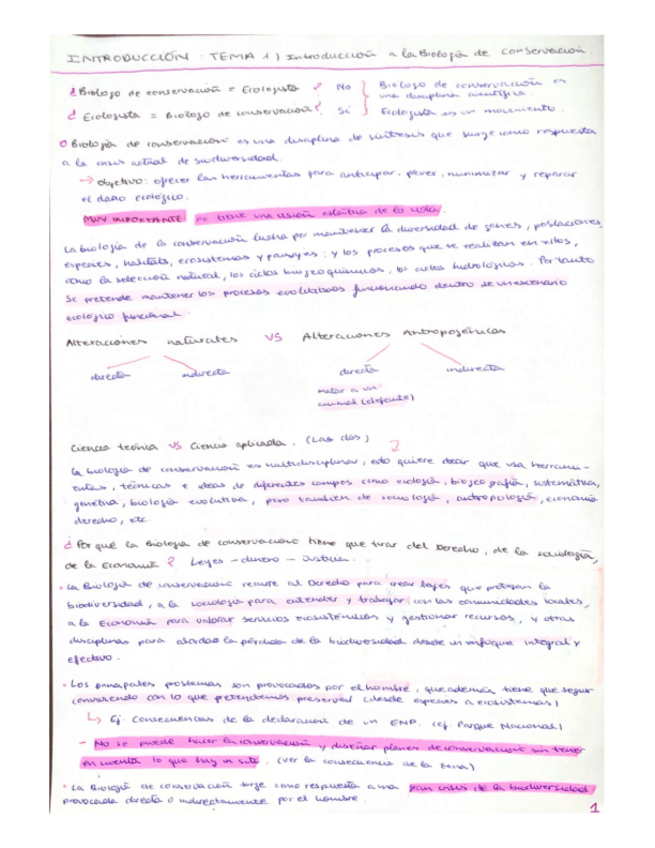 INTRODUCCIÓN - TEMA 1) Introducción a la Biología de conservación.
¿Biólogo de conservación = Ecologista? No } Biólogo de conservación es una disciplina científica.
¿Ecologista = Biólogo de conservación? Sí } Ecologista es un movimiento.
Biología de conservación: es una disciplina de síntesis que surge como respuesta
a la crisis actual de biodiversidad.
→ objetivo: ofrecer las herramientas para anticipar, prever, minimizar y reparar
el daño ecológico.
MUY IMPORTANTE no tiene una visión estática de la vida.
La biología de la conservación lucha por mantener la diversidad de genes, poblaciones,
especies, hábitats, ecosistemas y paisajes; y los procesos que se realizan en ellos,
como la selección natural, los ciclos biogeoquímicos, los ciclos hidrológicos. Por tanto
se pretende mantener los procesos evolutivos funcionando dentro de un escenario
ecológico funcional.
Alteraciones naturales VS Alteraciones Antropogénicas
directa indirecta directa indirecta
matar a un
animal (elefante)
Ciencia teórica VS Ciencia aplicada. (Las dos)
La biología de conservación es multidisciplinar, esto quiere decir que usa herrami-
entas, técnicas e ideas de diferentes campos como ecología, biogeografía, sistemática,
genética, biología evolutiva, pero también de sociología, antropología, economía
derecho, etc.
¿Por qué la Biología de conservación tiene que tirar del Derecho, de la sociología,
de la Economía? Leyes - dinero - Justicia.
• La Biología de conservación recurre al Derecho para crear leyes que protejan la
biodiversidad, a la sociología para entender y trabajar con las comunidades locales,
a la Economía para valorar servicios ecosistémicos y gestionar recursos, y otras
disciplinas para abordar la pérdida de la biodiversidad desde un enfoque integral y
efectivo.
• Los principales problemas son provocados por el hombre, que además tiene que seguir
conviviendo con lo que pretendemos preservar (desde especies a ecosistemas)
↳ Ej: Consecuencias de la declaración de un ENP. (ej. Parque Nacional)
- No se puede hacer la conservación y diseñar planes de conservación sin tener
en cuenta lo que hay in situ. (ver la consecuencia de la zona)
• La Biología de conservación surge como respuesta a una gran crisis de la biodiversidad
provocada directa o indirectamente por el hombre.
1